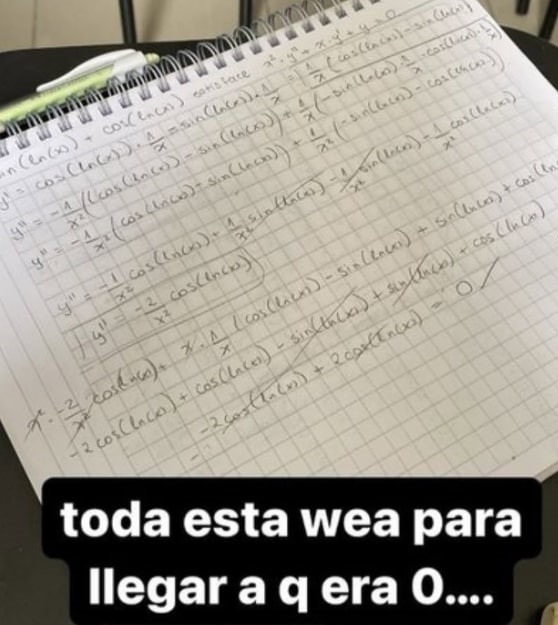 in(ln(x)) + cos(ln(x)) satisface x²·y'' + x·y' + y = 0
y' = cos(ln(x))·1/x - sin(ln(x))·1/x = 1/x (cos(ln(x)) - sin(ln(x)))
y'' = -1/x² (cos(ln(x)) - sin(ln(x))) + 1/x (-sin(ln(x))·1/x - cos(ln(x))·1/x)
y'' = -1/x² (cos(ln(x)) - sin(ln(x))) + 1/x² (-sin(ln(x)) - cos(ln(x)))
y'' = -1/x² cos(ln(x)) + 1/x² sin(ln(x)) - 1/x² sin(ln(x)) - 1/x² cos(ln(x))
y'' = -2/x² cos(ln(x))
x²·-2/x² cos(ln(x)) + x·1/x (cos(ln(x)) - sin(ln(x)) + sin(ln(x)) + cos(ln
-2cos(ln(x)) + cos(ln(x)) - sin(ln(x)) + sin(ln(x)) + cos(ln(x))
-2cos(ln(x)) + 2cos(ln(x)) = 0
toda esta wea para
llegar a q era 0....